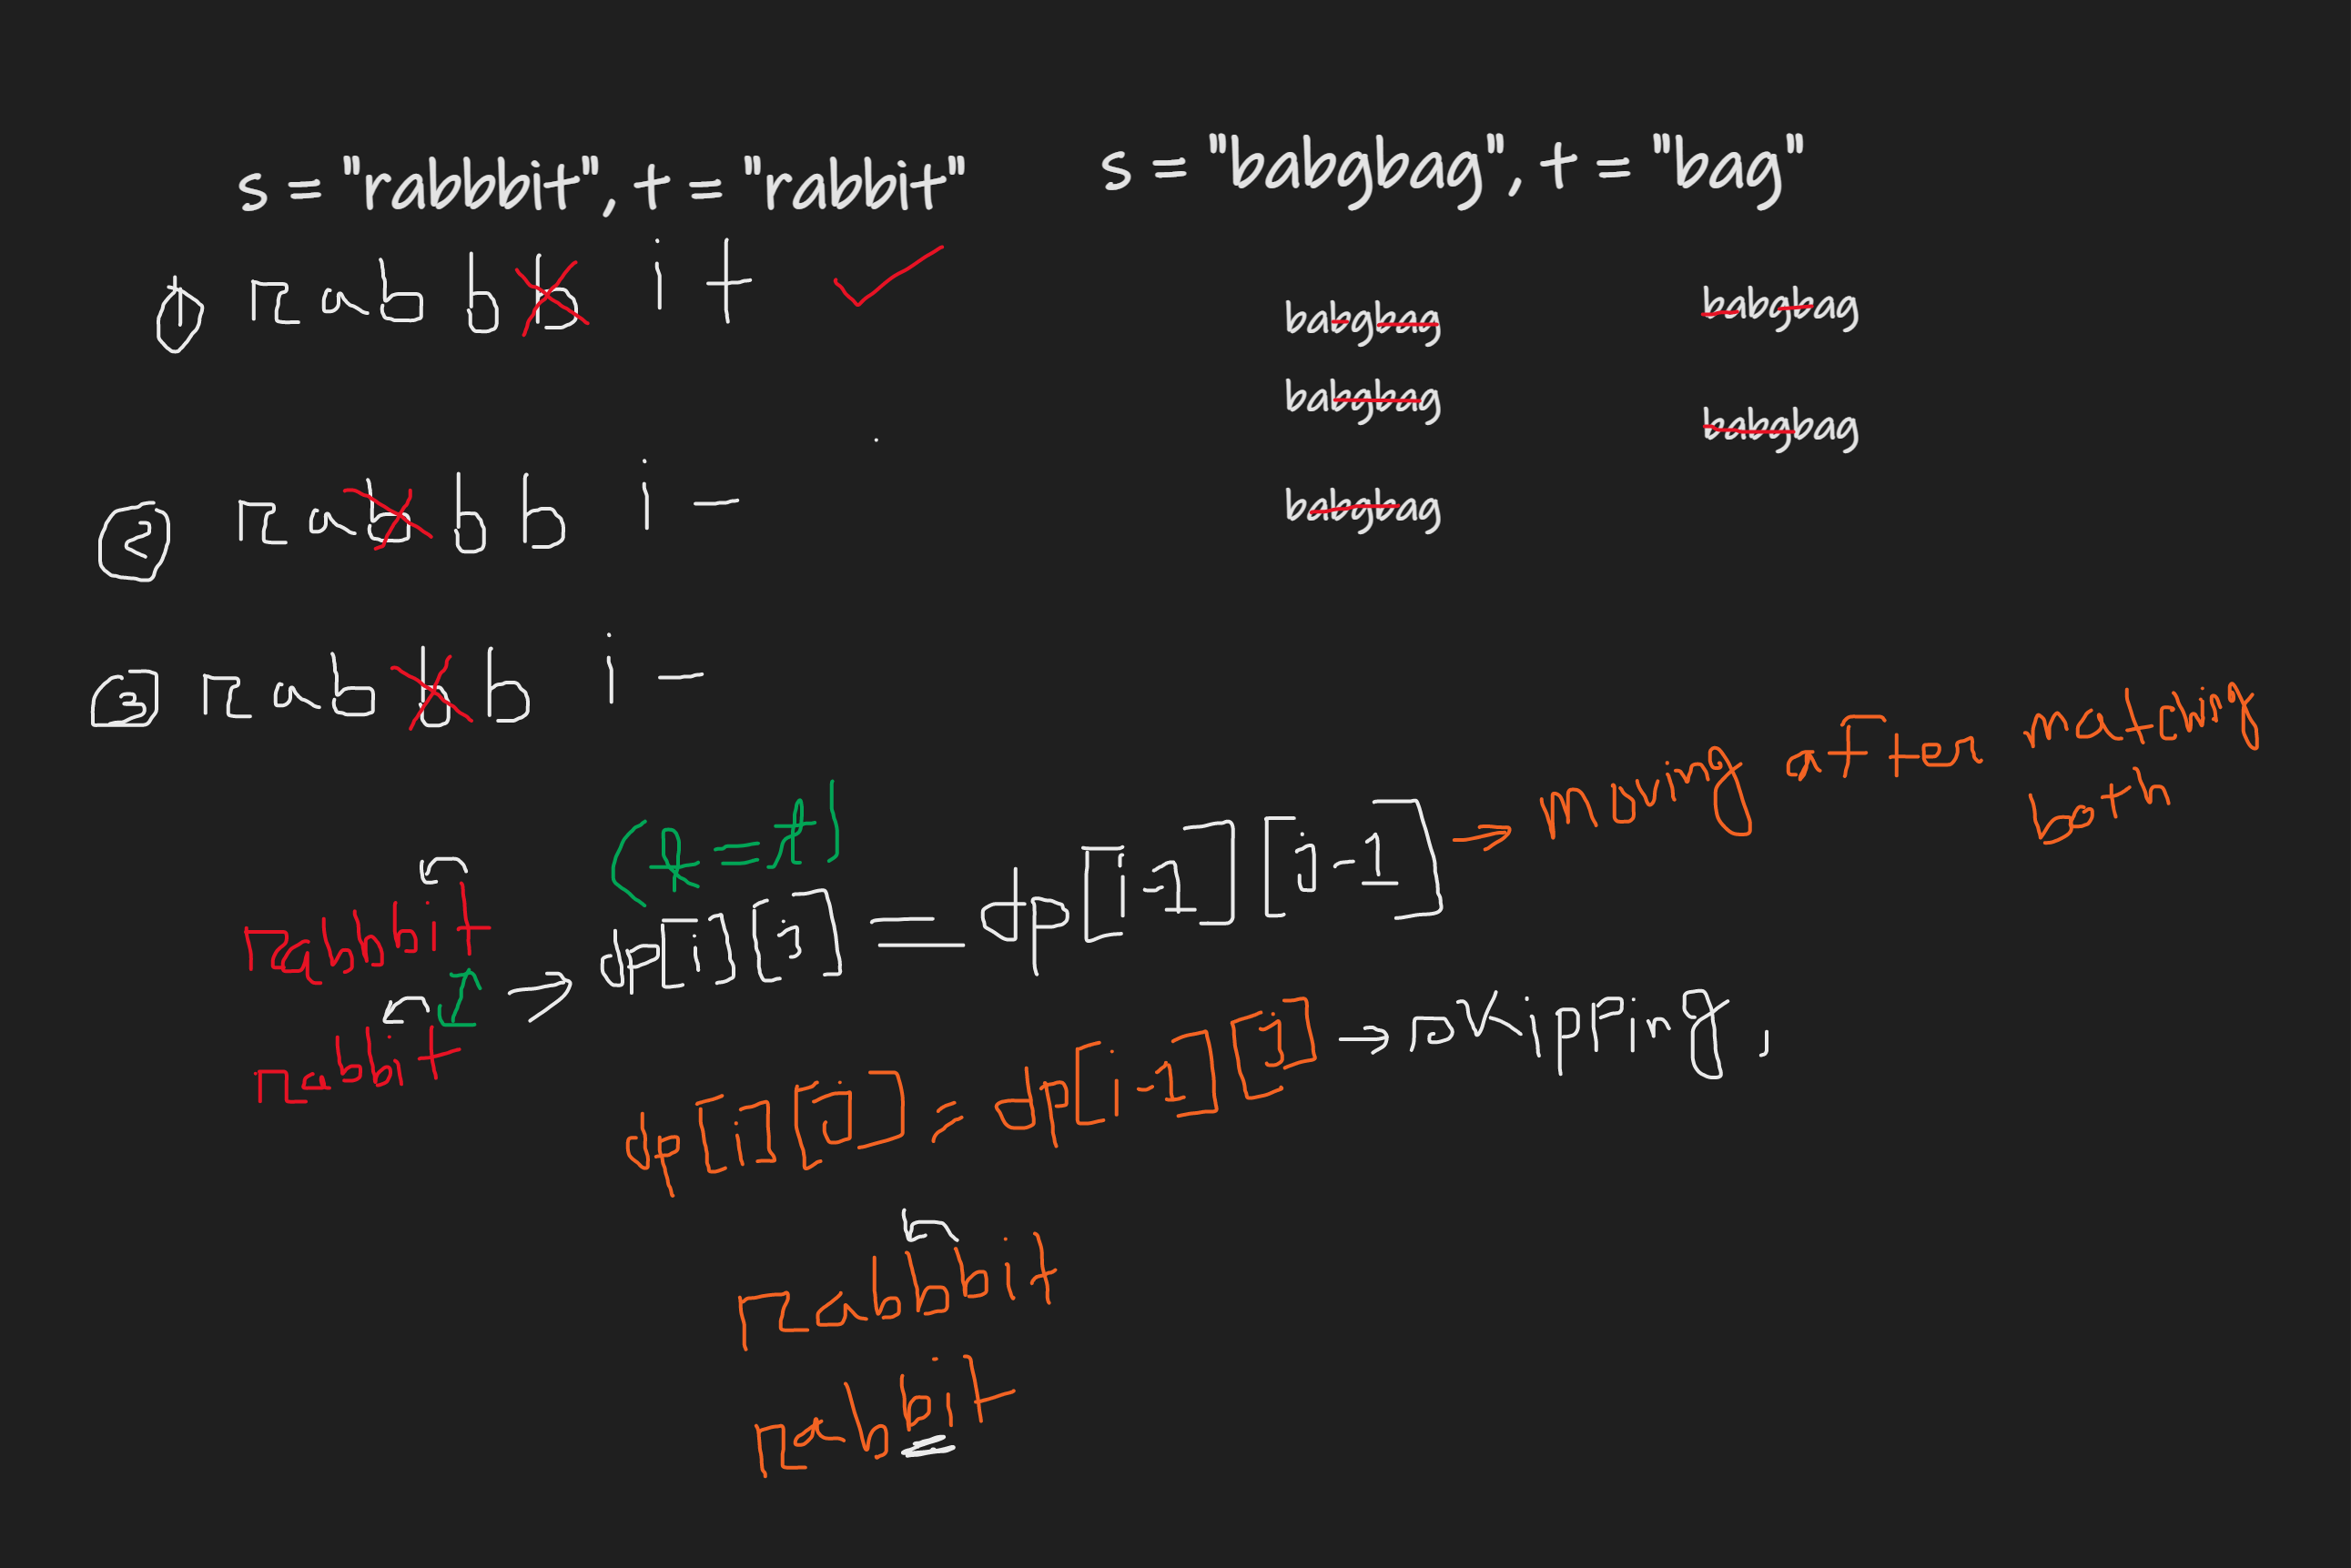 s = "rabbbit", t = "rabbit"
① r a b b b i t
② r a b b b i -
③ r a b b b i -
s = "babgbag", t = "bag"
babgbag
babgbag
babgbag
babgbag
babgbag
rabbbit
rabbit
(t = t)
⇒ dp[i][j] = dp[i-1][j-1] → moving after matching
both
dp[i][j] = dp[i-1][j] → skipping,
rabbbit
rabbit